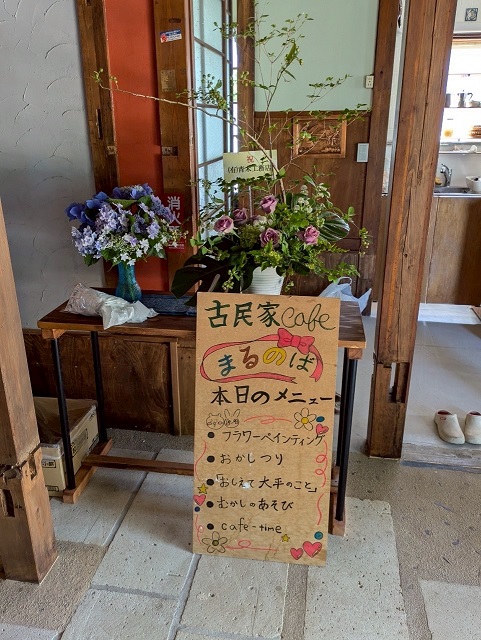 祝
消火
古民家cafe
まるのば
本日のメニュー
フラワーペインティング
おかしつり
「おしえて大平のこと」
むかしのあそび
cafe-time